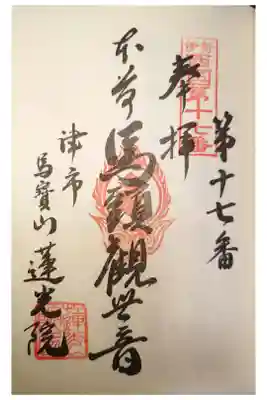 第十七番
奉拝
本尊馬頭観世音
津市
馬寶山蓮光院